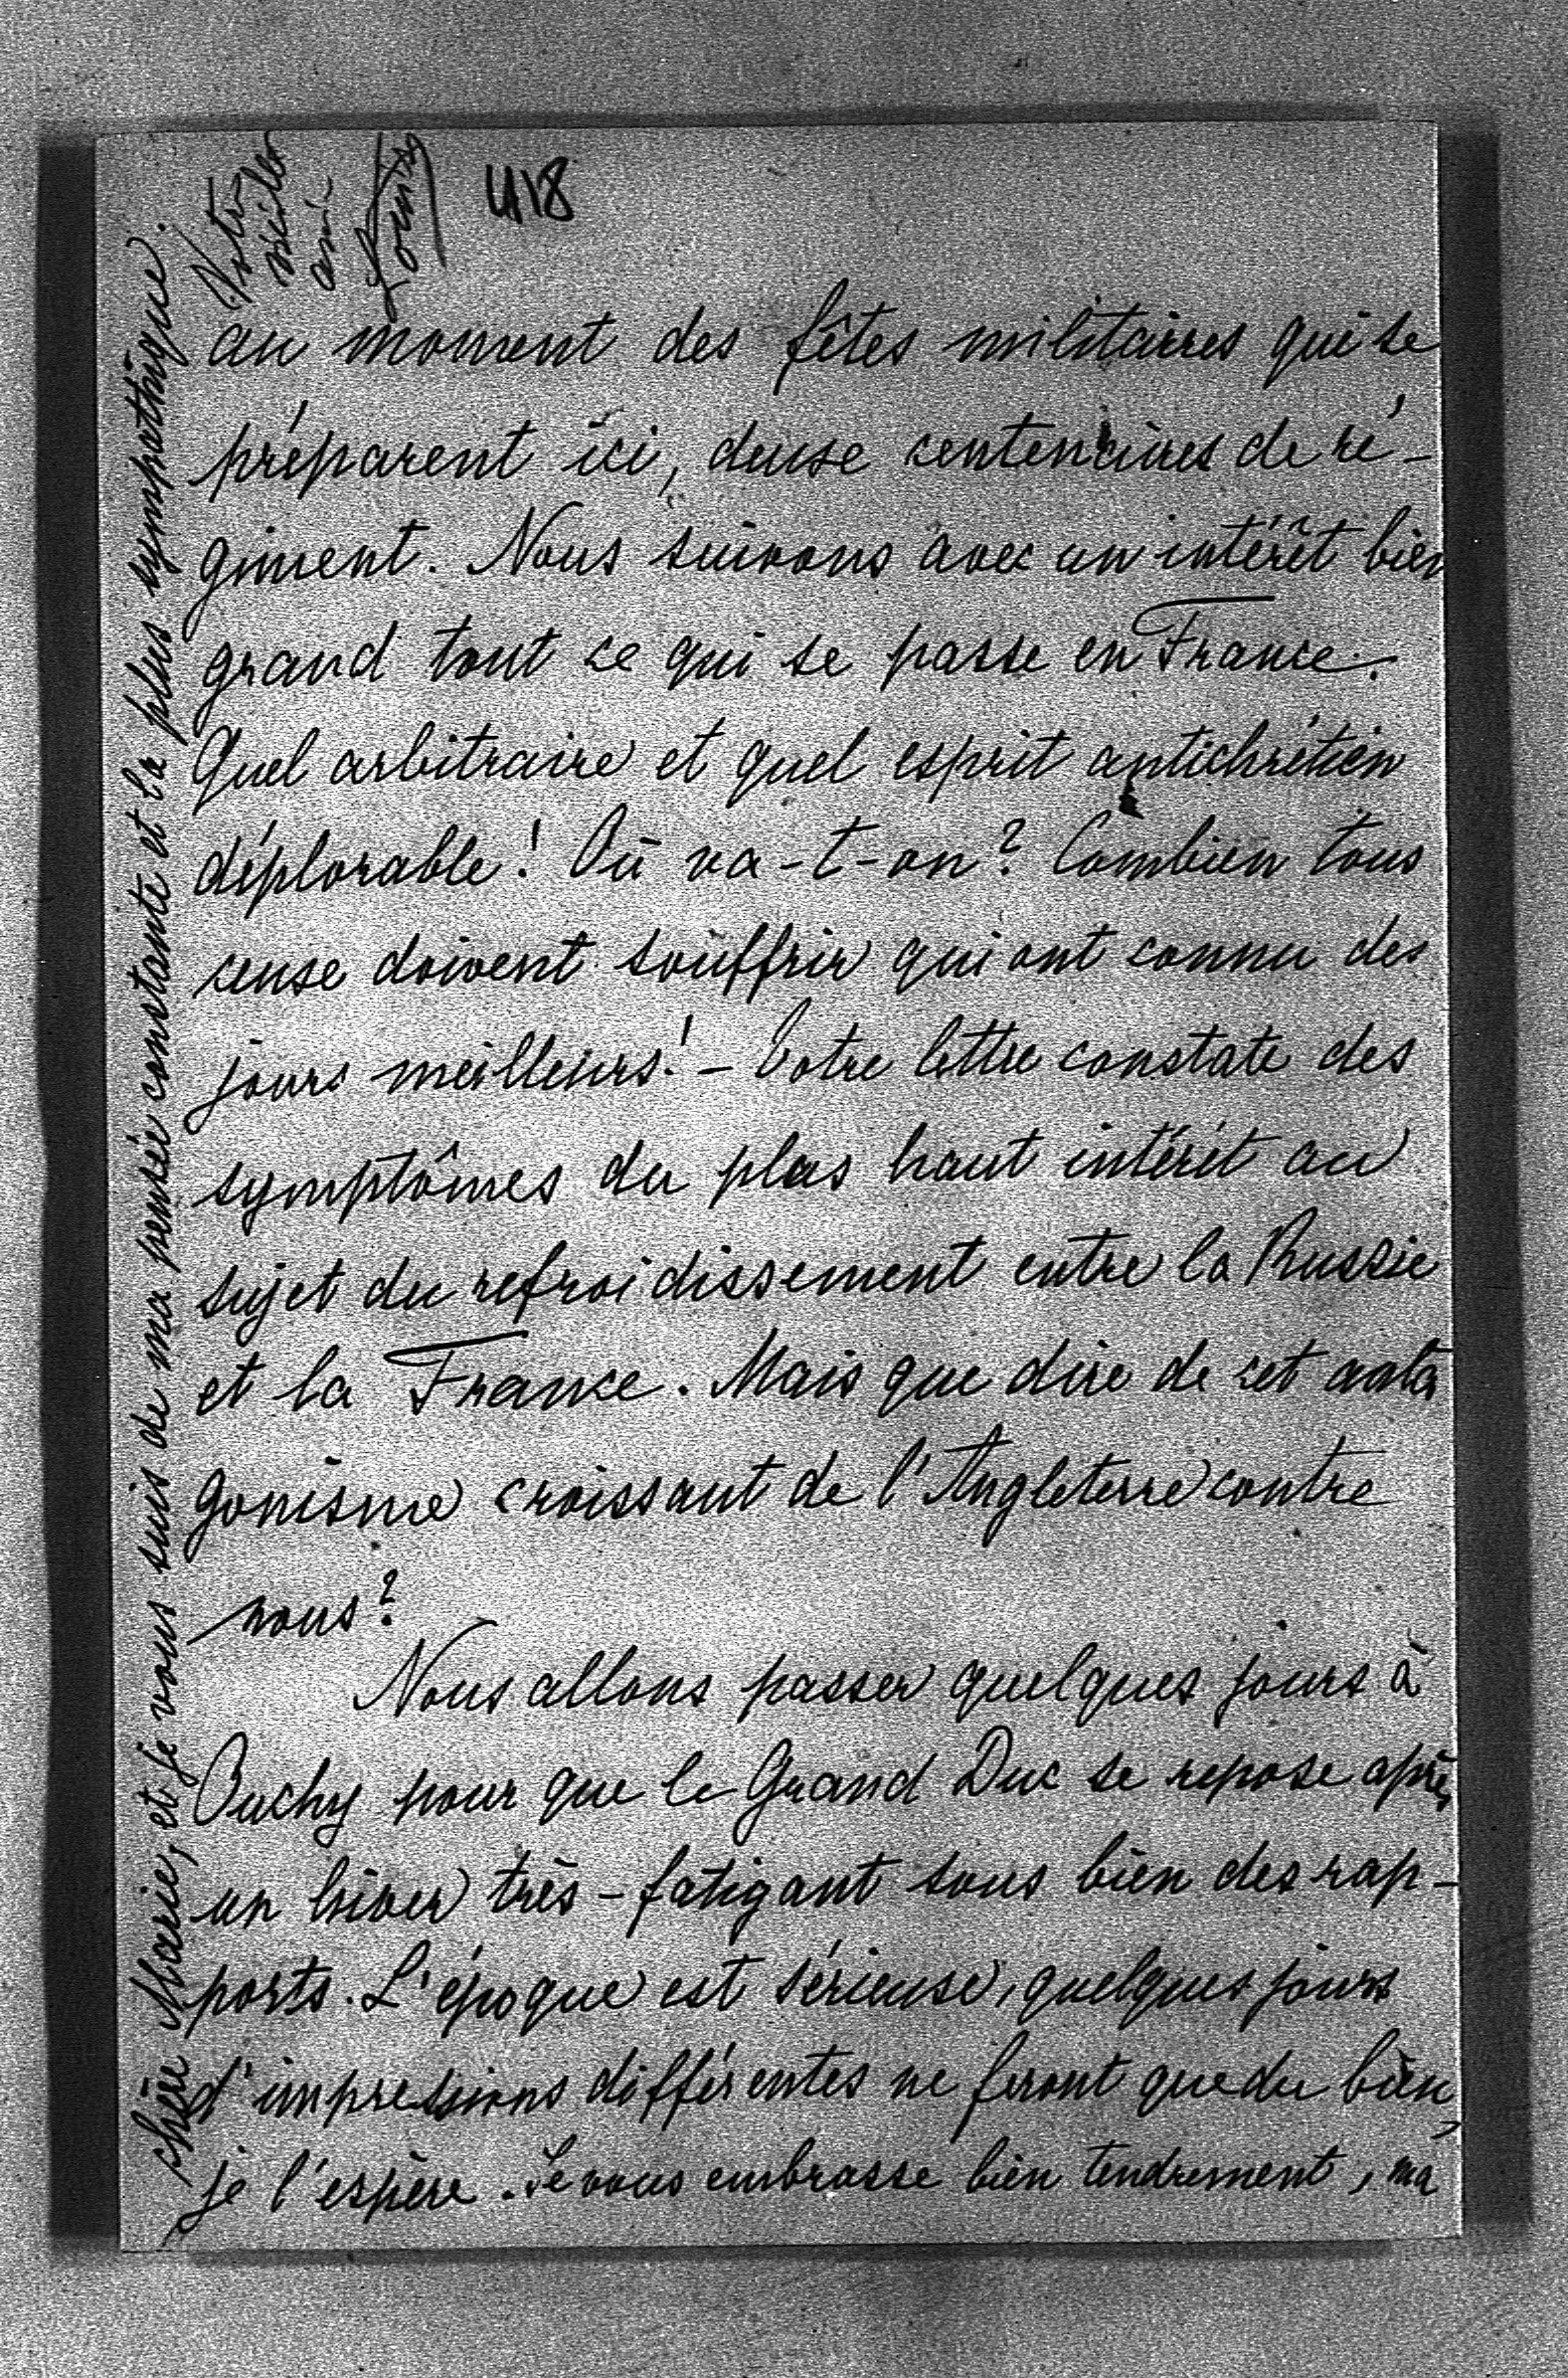 418
au moment des fêtes militaires qui se
préparent ici, deux centenaires de ré-
giment. Nous suivons avec un intérêt bien
grand tout ce qui se passe en France.
Quel arbitraire et quel esprit antichrétien
déplorable! Où va-t-on? Combien tous
ceux doivent souffrir qui ont connu des
jours meilleurs! - Votre lettre constate des
symptômes du plus haut intérêt au
sujet du refroidissement entre la Russie
et la France. Mais que dire de cet anta
gonisme croissant de l'Angleterre contre
nous?
Nous allons passer quelques jours à
Ouchy pour que le Grand Duc se repose après
un hiver très-fatigant sous bien des rap-
ports. L'époque est sérieuse, quelques jours
d'impressions différentes ne feront que du bien,
je l'espère. Je vous embrasse bien tendrement, ma
chère Marie, et je vous suis de ma pensée constante et la plus sympathique.
Votre
vieille
amie
Louise